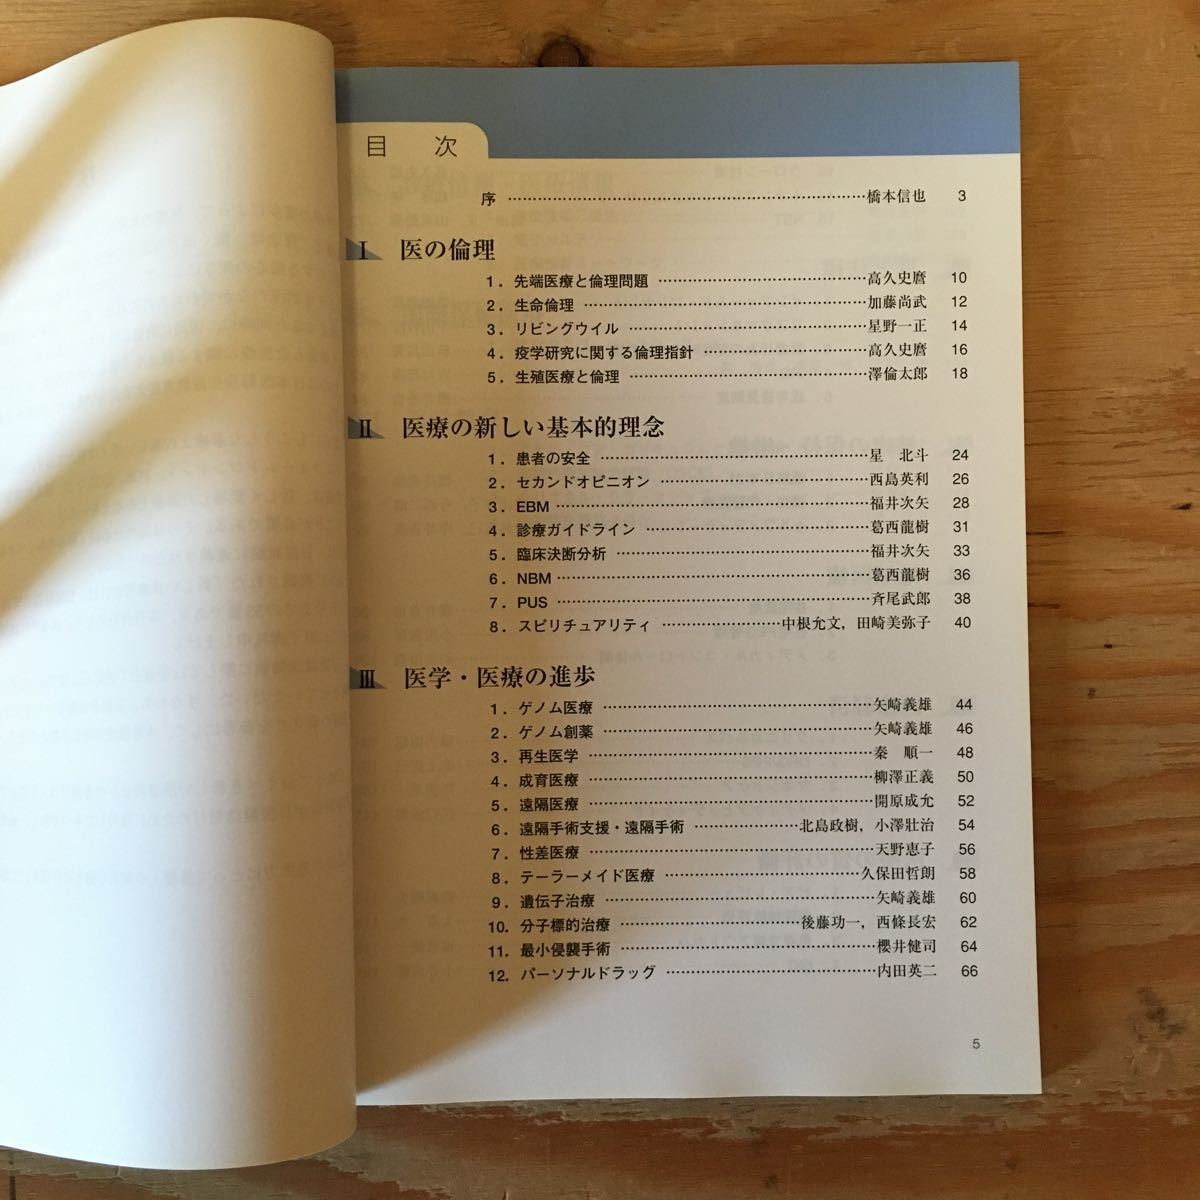 目 次
序 …… 橋本信也 3
Ⅰ 医の倫理
1. 先端医療と倫理問題 …… 高久史麿 10
2. 生命倫理 …… 加藤尚武 12
3. リビングウイル …… 星野一正 14
4. 疫学研究に関する倫理指針 …… 高久史麿 16
5. 生殖医療と倫理 …… 澤倫太郎 18
Ⅱ 医療の新しい基本的理念
1. 患者の安全 …… 星 北斗 24
2. セカンドオピニオン …… 西島英利 26
3. EBM …… 福井次矢 28
4. 診療ガイドライン …… 葛西龍樹 31
5. 臨床決断分析 …… 福井次矢 33
6. NBM …… 葛西龍樹 36
7. PUS …… 斉尾武郎 38
8. スピリチュアリティ …… 中根允文，田崎美弥子 40
Ⅲ 医学・医療の進歩
1. ゲノム医療 …… 矢崎義雄 44
2. ゲノム創薬 …… 矢崎義雄 46
3. 再生医学 …… 秦 順一 48
4. 成育医療 …… 柳澤正義 50
5. 遠隔医療 …… 開原成允 52
6. 遠隔手術支援・遠隔手術 …… 北島政樹，小澤壯治 54
7. 性差医療 …… 天野恵子 56
8. テーラーメイド医療 …… 久保田哲朗 58
9. 遺伝子治療 …… 矢崎義雄 60
10. 分子標的治療 …… 後藤功一，西條長宏 62
11. 最小侵襲手術 …… 櫻井健司 64
12. パーソナルドラッグ …… 内田英二 66
5